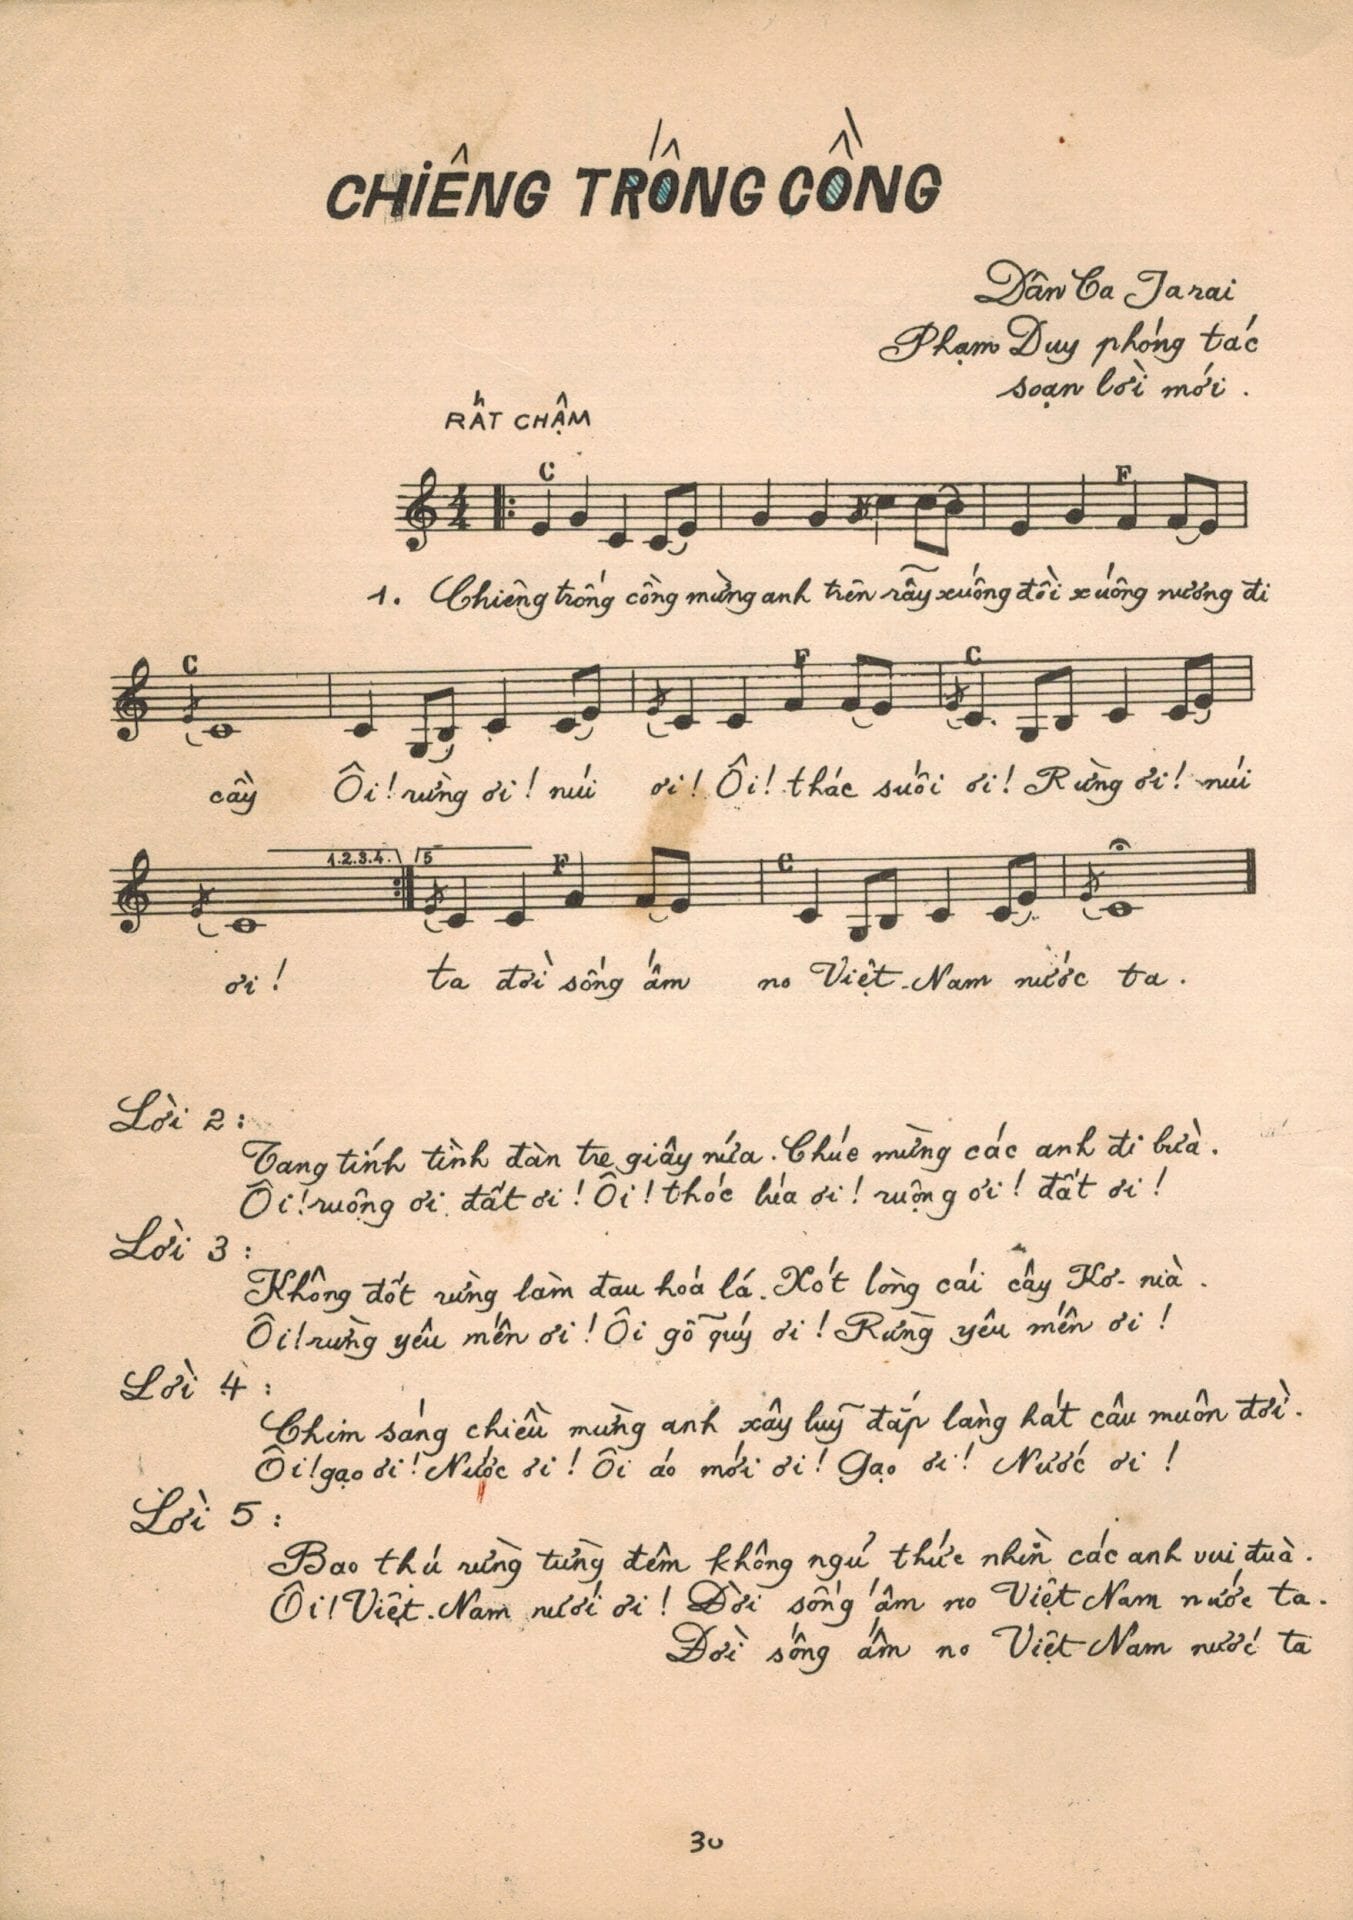 CHIÊNG TRỐNG CỒNG
Dân Ca Jarai
Phạm Duy phóng tác
soạn lời mới.
RẤT CHẬM
C F
4
4
1. Chiêng trống cồng mừng anh trên rẫy xuống đồi xuống nương đi
C F C
cầy Ôi! rừng ơi! núi ơi! Ôi! thác suối ơi! Rừng ơi! núi
1.2.3.4. 5 F C
ơi! ta đời sống ấm no Việt-Nam nước ta.
Lời 2:
Tang tính tình đàn tre giây nứa. Chúc mừng các anh đi bừa.
Ôi! ruộng ơi đất ơi! Ôi! thóc lúa ơi! ruộng ơi! đất ơi!
Lời 3:
Không đốt rừng làm đau hoá lá. Xót lòng cái cây Kơ-nià.
Ôi! rừng yêu mến ơi! Ôi gỗ quý ơi! Rừng yêu mến ơi!
Lời 4:
Chim sáng chiều mừng anh xây luỹ đắp làng hát câu muôn đời.
Ôi! gạo ơi! Nước ơi! Ôi áo mới ơi! Gạo ơi! Nước ơi!
Lời 5:
Bao thú rừng từng đêm không ngủ thức nhìn các anh vui đuà.
Ôi! Việt-Nam nươí ơi! Đời sống ấm no Việt Nam nước ta.
Đời sống ấm no Việt Nam nước ta
30